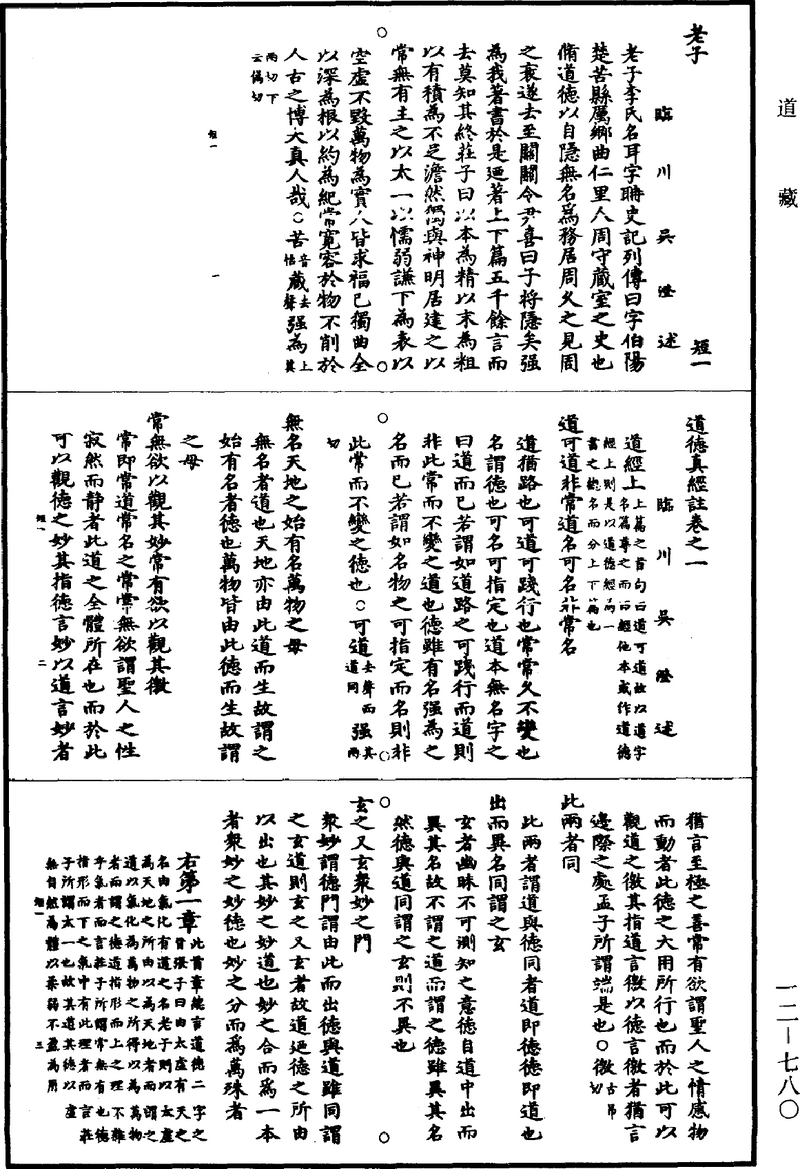 道藏
老子　　　　　　　　　短一
臨川吳澄述
老子李氏名耳字聃史記列傳曰字伯陽
楚苦縣厲鄉曲仁里人周守藏室之史也
脩道德以自隱無名爲務居周久之見周
之衰遂去至關關令尹喜曰子將隱矣强
為我著書於是迺著上下篇五千餘言而
去莫知其終莊子曰以本為精以末為粗
以有積為不足澹然獨與神明居建之以
常無有主之以太一以懦弱謙下為表以
空虛不毀萬物為實人皆求福己獨曲全
以深為根以約為紀常寬容於物不削於
人古之博大真人哉○苦音怙藏去聲强為上其
兩切下
云偽切
短一　一
道德真經註卷之一
臨川吳澄述
道經上上篇之首句曰道可道故以道字
名篇尊之而曰經他本或作道德
經上則是以道德經為一
書之總名而分上下篇也
道可道非常道名可名非常名
道猶路也可道可踐行也常常久不變也
名謂德也可名可指定也道本無名字之
曰道而已若謂如道路之可踐行而道則
非此常而不變之道也德雖有名强為之
名而已若謂如名物之可指定而名則非
此常而不變之德也○可道去聲而道同强其兩
切
無名天地之始有名萬物之母
無名者道也天地亦由此道而生故謂之
始有名者德也萬物皆由此德而生故謂
之母
常無欲以觀其妙常有欲以觀其徼
常即常道常名之常常無欲謂聖人之性
寂然而静者此道之全體所在也而於此
可以觀德之妙其指德言妙以道言妙者
短一　二
猶言至極之善常有欲謂聖人之情感物
而動者此德之大用所行也而於此可以
觀道之徼其指道言徼以德言徼者猶言
邊際之處孟子所謂端是也○徼古吊切
此兩者同
此兩者謂道與德同者道即德德即道也
出而異名同謂之玄
玄者幽昧不可測知之意德自道中出而
異其名故不謂之道而謂之德雖異其名
然德與道同謂之玄則不異也
玄之又玄衆妙之門
衆妙謂德門謂由此而出德與道雖同謂
之玄道則玄之又玄者故道迺德之所由
以出也其妙之妙道也妙之合而爲一本
者衆妙之妙德也妙之分而爲萬殊者
右第一章此首章總言道德二字之
旨張子曰由太虛有天之
名由氣化有道之名老子則以太虛
為天地之所由以為天地者而謂之
道以氣化為萬物之所得以為萬物
者而謂之德道指形而上之理不雜
乎氣者而言莊子所謂常無有也德
指形而下之氣中有此理者而言莊
子所謂太一也故其道其德以虛
無自然為體以柔弱不盈為用
短一　三
一二—七八〇